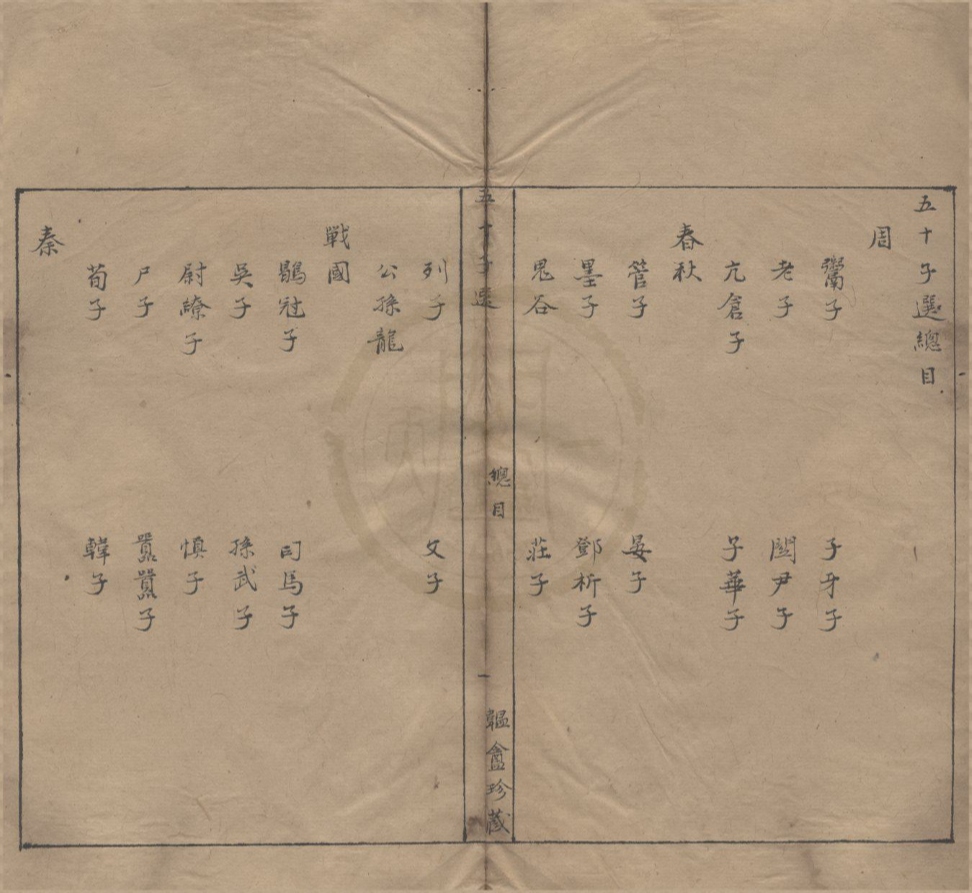 五十子選總目
周
鬻子 子牙子
老子 關尹子
亢倉子 子華子
春秋
管子 晏子
墨子 鄧析子
鬼谷 莊子
五十子選 總目 一 韞盦珍蔵
列子 文子
公孫龍
戰國
鶡冠子 司馬子
吳子 孫武子
尉繚子 慎子
尸子 嚚嚚子
荀子 韓子
秦